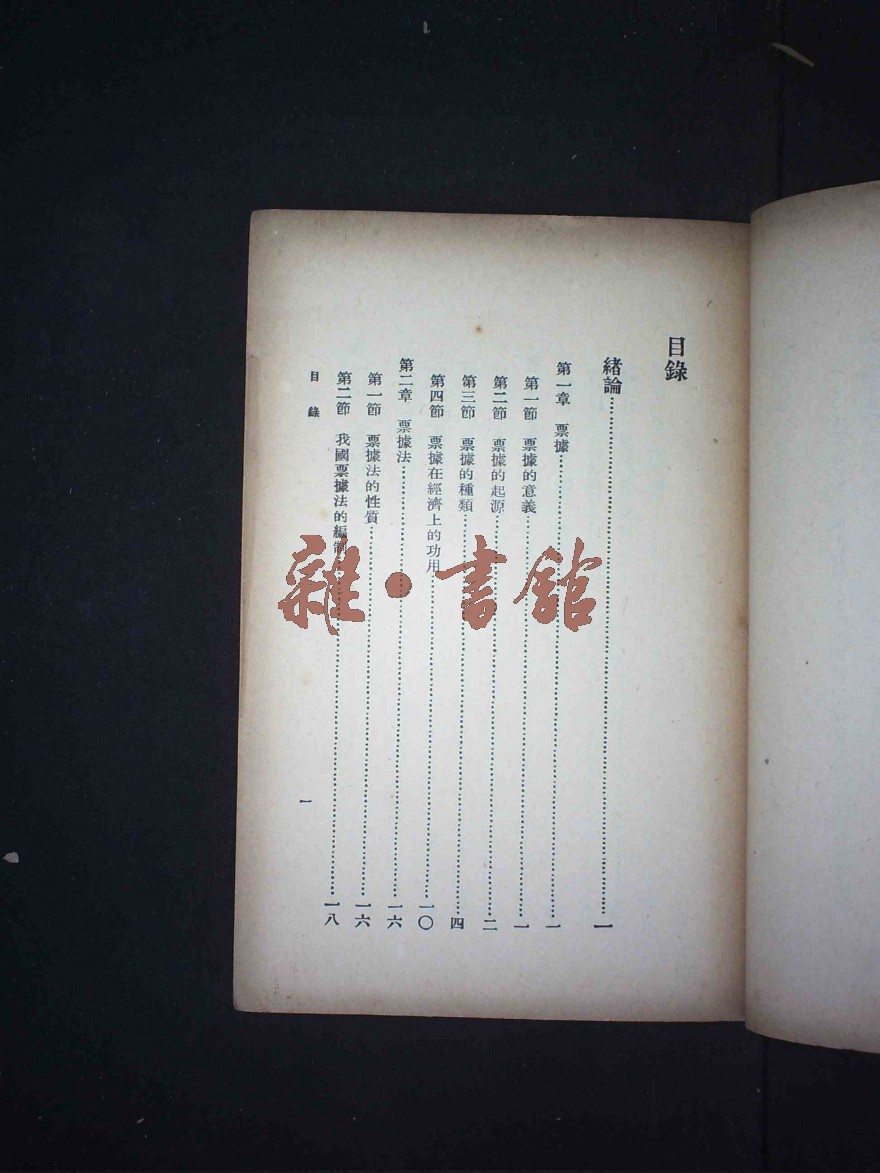 目錄
緒論……一
第一章 票據……一
第一節 票據的意義……一
第二節 票據的起源……二
第三節 票據的種類……四
第四節 票據在經濟上的功用……一〇
第二章 票據法……一六
第一節 票據法的性質……一六
第二節 我國票據法的編制……一八
目錄
一
雜·書館